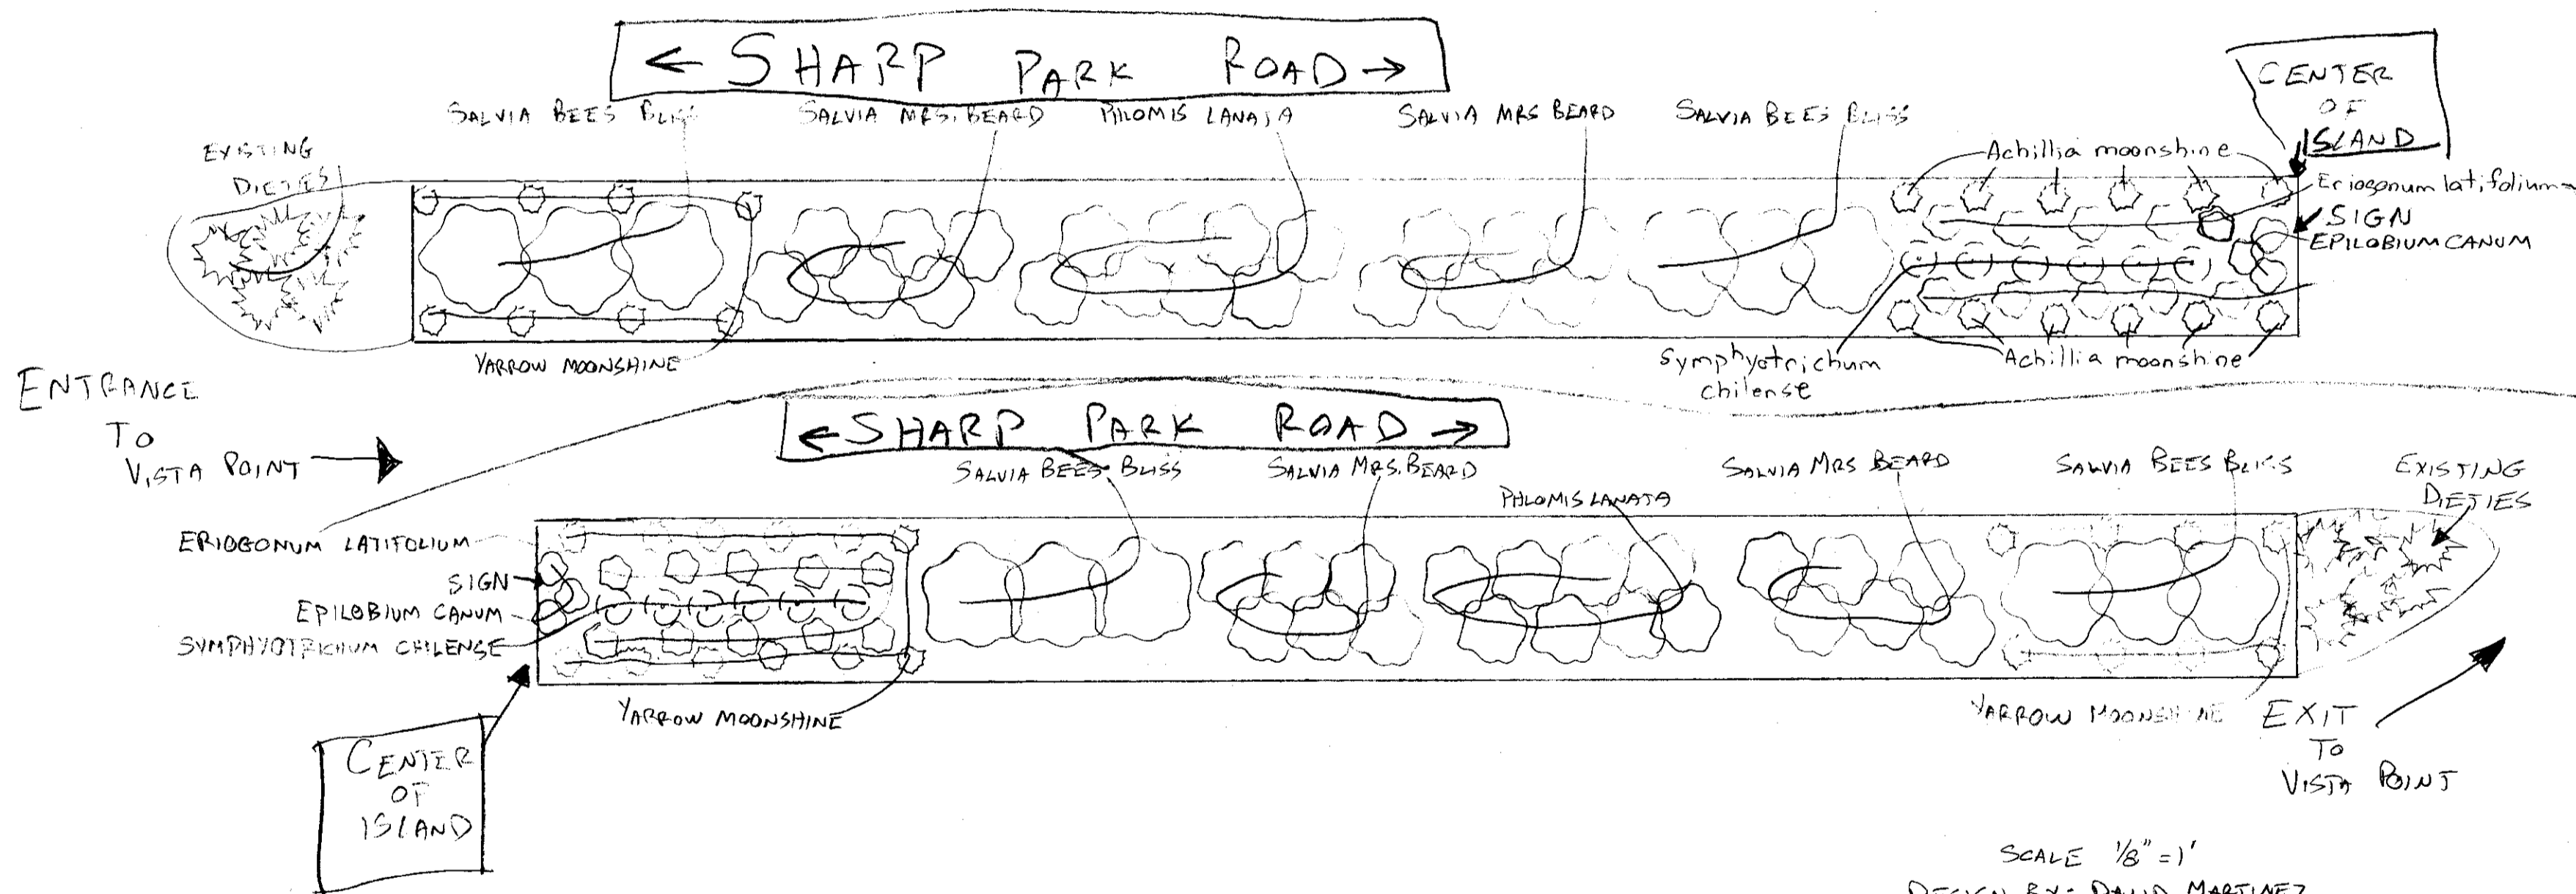 ← SHARP PARK ROAD →
CENTER
OF
ISLAND
SALVIA BEES BLISS
SALVIA MRS. BEARD
PHLOMIS LANATA
SALVIA MRS BEARD
SALVIA BEES BLISS
EXISTING
DIETIES
Achillia moonshine
Eriogonum latifolium
SIGN
EPILOBIUM CANUM
YARROW MOONSHINE
Symphyotrichum
chilense
Achillia moonshine
ENTRANCE
TO
VISTA POINT
← SHARP PARK ROAD →
SALVIA BEES BLISS
SALVIA MRS. BEARD
PHLOMIS LANATA
SALVIA MRS BEARD
SALVIA BEES BLISS
EXISTING
DIETIES
ERIOGONUM LATIFOLIUM
SIGN
EPILOBIUM CANUM
SYMPHYOTRICHUM CHILENSE
YARROW MOONSHINE
YARROW MOONSHINE
EXIT
TO
VISTA POINT
CENTER
OF
ISLAND
SCALE 1/8" = 1'
DESIGN BY: DAVID MARTINEZ